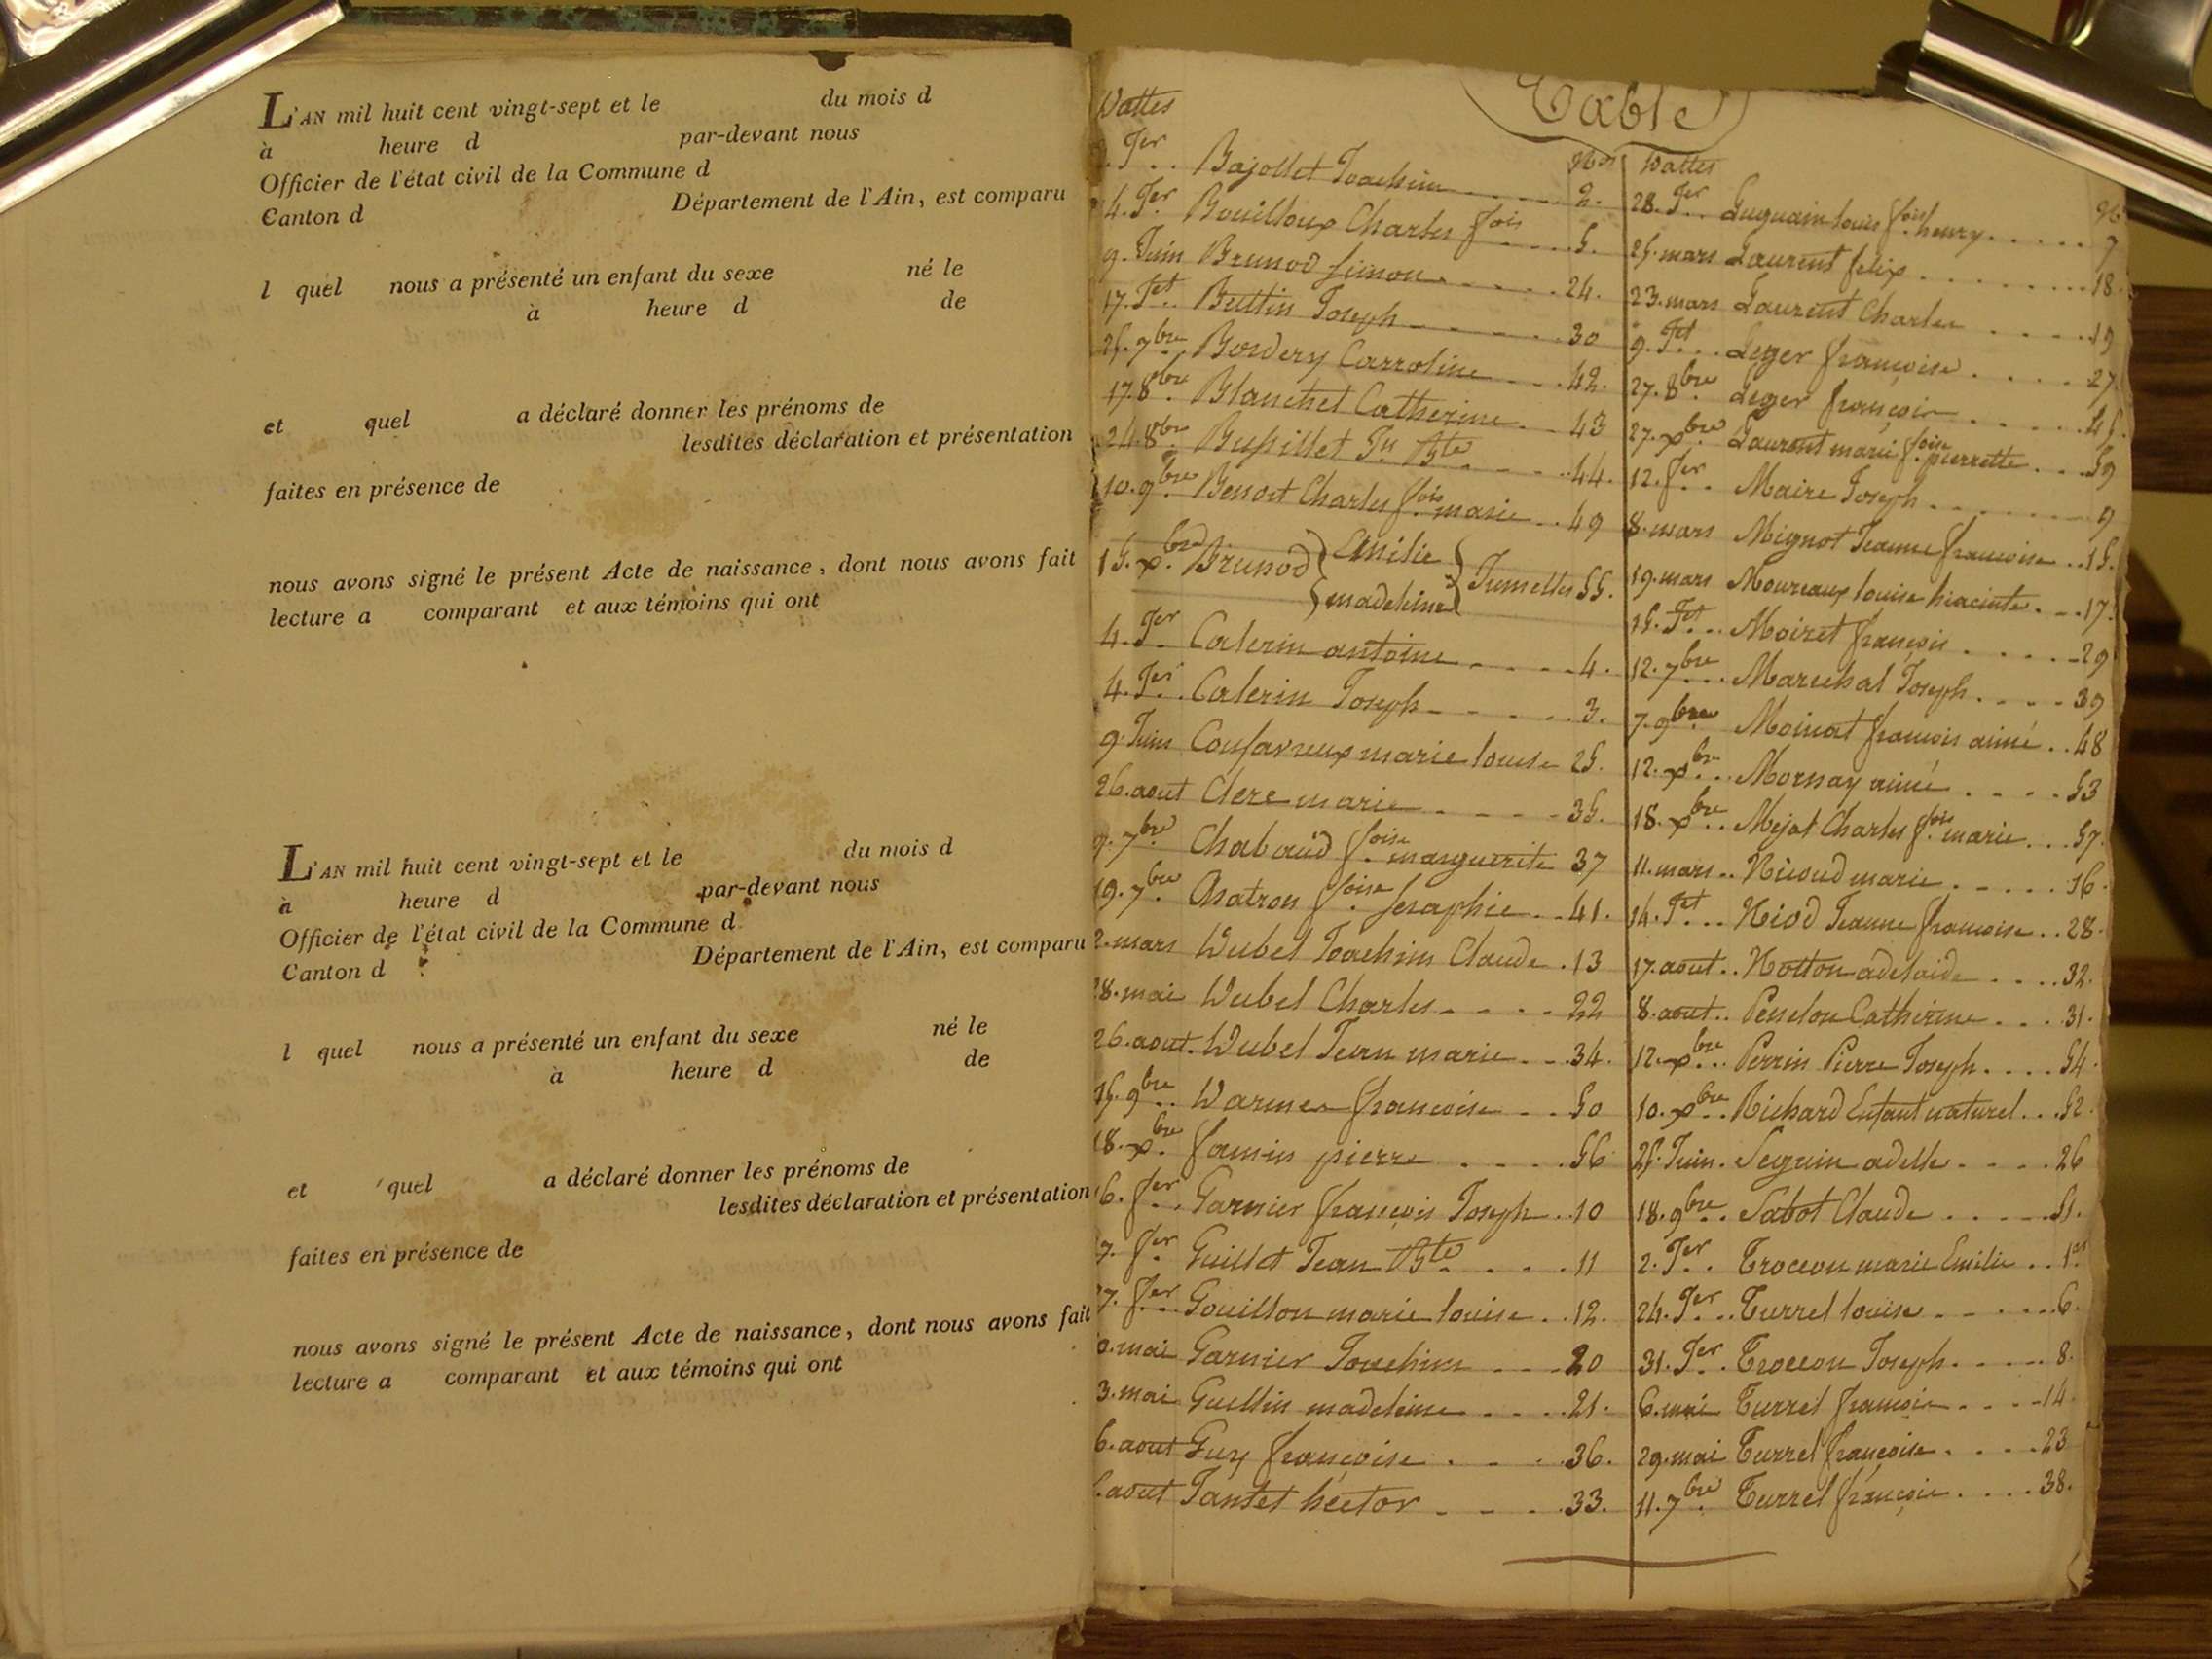 L'AN mil huit cent vingt-sept et le du mois d
à heure d par-devant nous
Officier de l'état civil de la Commune d
Canton d Département de l'Ain, est comparu
l quel nous a présenté un enfant du sexe né le
à heure d de
et quel a déclaré donner les prénoms de
lesdites déclaration et présentation
faites en présence de
nous avons signé le présent Acte de naissance, dont nous avons fait
lecture a comparant et aux témoins qui ont
L'AN mil huit cent vingt-sept et le du mois d
à heure d par-devant nous
Officier de l'état civil de la Commune d
Canton d Département de l'Ain, est comparu
l quel nous a présenté un enfant du sexe né le
à heure d de
et quel a déclaré donner les prénoms de
lesdites déclaration et présentation
faites en présence de
nous avons signé le présent Acte de naissance, dont nous avons fait
lecture a comparant et aux témoins qui ont
Table
Dattes Nos
Jer Bajollet Joachim 2.
4. Jer Bouilloux Charles fois 5.
9. Juin Brunod Simon 24.
17. Jet Buttin Joseph 30
25. 7bre Bordery Carroline 42.
17. 8bre Blanchet Catherine 43
24. 8bre Bussillet Jn Bte 44.
10. 9bre Benoit Charles fois marie 49
15. xbre Brunod Emilie madeleine Jumelles 55.
4. Jer Caterin antoine 4.
4. Jer Caterin Joseph 3.
9. Juin Confavreux marie louise 25.
26. aout Clerc marie 35.
9. 7bre Chabaud foise marguerite 37
19. 7bre Chatron foise Seraphie 41.
2. mars Dubel Joachim Claude 13
28. mai Dubel Charles 22
26. aout Dubel Jean marie 34.
15. 9bre Darmes francoise 50
18. xbre famin pierre 56
6. fer Garnier francois Joseph 10
7. fer Guillot Jean Bte 11
7. fer Gouillon marie louise 12.
mai Garnier Joachim 20
3. mai Guillin madeleine 21.
6. aout Guy francoise 36.
aout Jantet hector 33.
Dattes No
28. Jer Luguain louis fois henry 7
25. mars Laurent felix 18.
23. mars Laurent Charles 19
9. Jet Leger francoise 27
27. 8bre Leger francois 45.
27. xbre Laurent marie foise pierrette 59
12. fer Maire Joseph 9
8. mars Mignot Jeanne francoise 15.
19. mars Moureaux louise hiacinte 17.
15. Jet Moiret francois 29
12. 7bre Marechal Joseph 39
7. 9bre Moinat francois aimé 48
12. xbre Mornay aimé 53
18. xbre Mejat Charles fois marie 57.
11. mars Nicoud marie 16.
14. Jet Niod Jeanne francoise 28.
17. aout Notton adelaide 32.
8. aout Penelon Catherine 31.
12. xbre Perrin Pierre Joseph 54.
10. xbre Richard Enfant naturel 52.
25. Juin Seguin adelle 26
18. 9bre Sabot Claude 51.
2. Jer Troccon marie Emilie 1er
24. Jer Turrel louise 6.
31. Jer Troccon Joseph 8.
6. mai Turrel francois 14
29. mai Turrel francoise 23
11. 7bre Turrel francois 38.